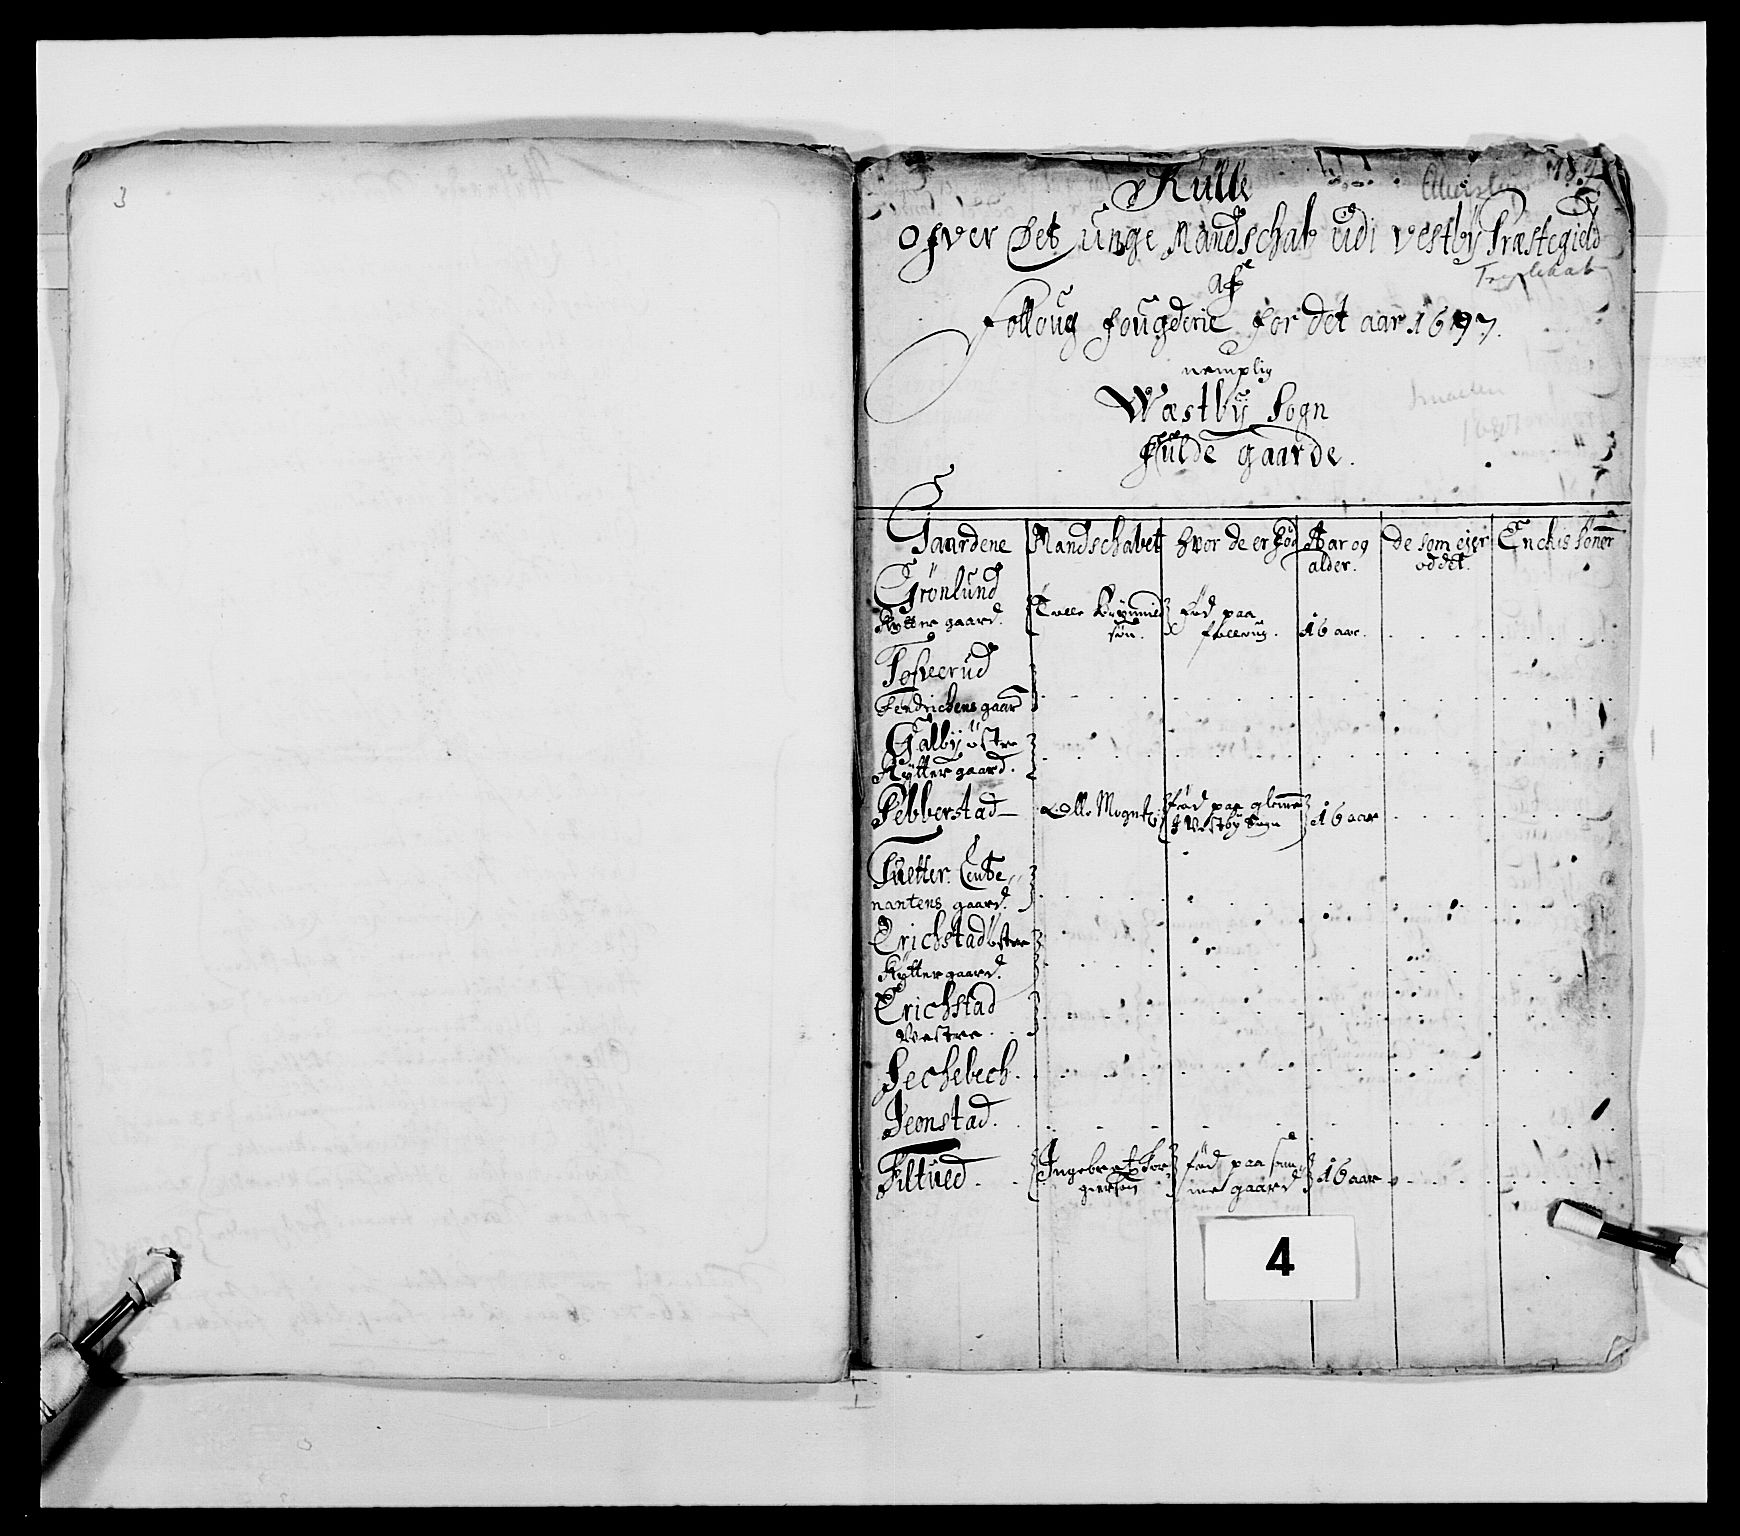 3
Rulle
ofver Det unge Mandschab udi Vestbÿ Præstegield
af
Folloug fougderie for det aar 1697.
nemplig
Wæstbÿ Sogn
fulde gaarde.
Gaardene Mandschabet hvor de er fød Aar og alder. De som ejer oddet. Enckis Sønner
Grönlund
Rytter gaard. Tolle fød paa folloug. 16 aar.
Tofverud
Fendrichens gaard
Galbÿ östre
Rÿtter gaard.
Pebberstad Olle Mognß: fød paa glenne I Vestbÿ Sogn 16 aar
Tuetter Leute
nantens gaard.
Erichstad östre
Rÿtter gaard.
Erichstad
Vestre.
Sechebech.
Deonstad.
Filtued. Ingebret Tor gierßøn fød paa sam me gaard 16 aar
4